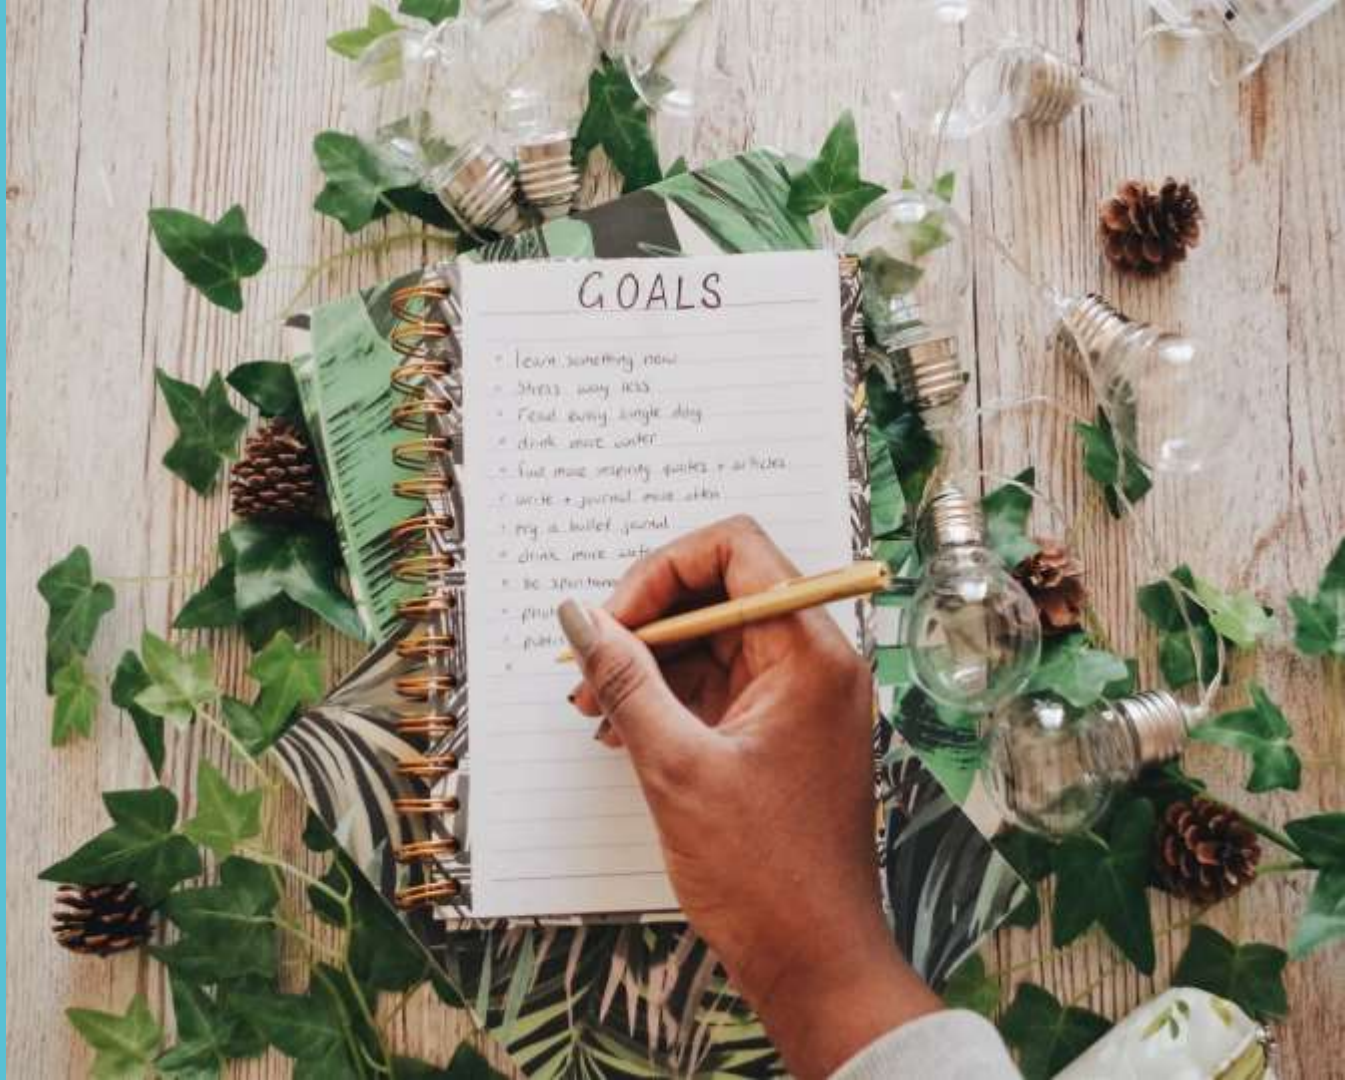 GOALS
learn something new
stress way less
read every single day
drink more water
find more inspiring quotes + articles
write + journal more often
try a bullet journal
drink more
be